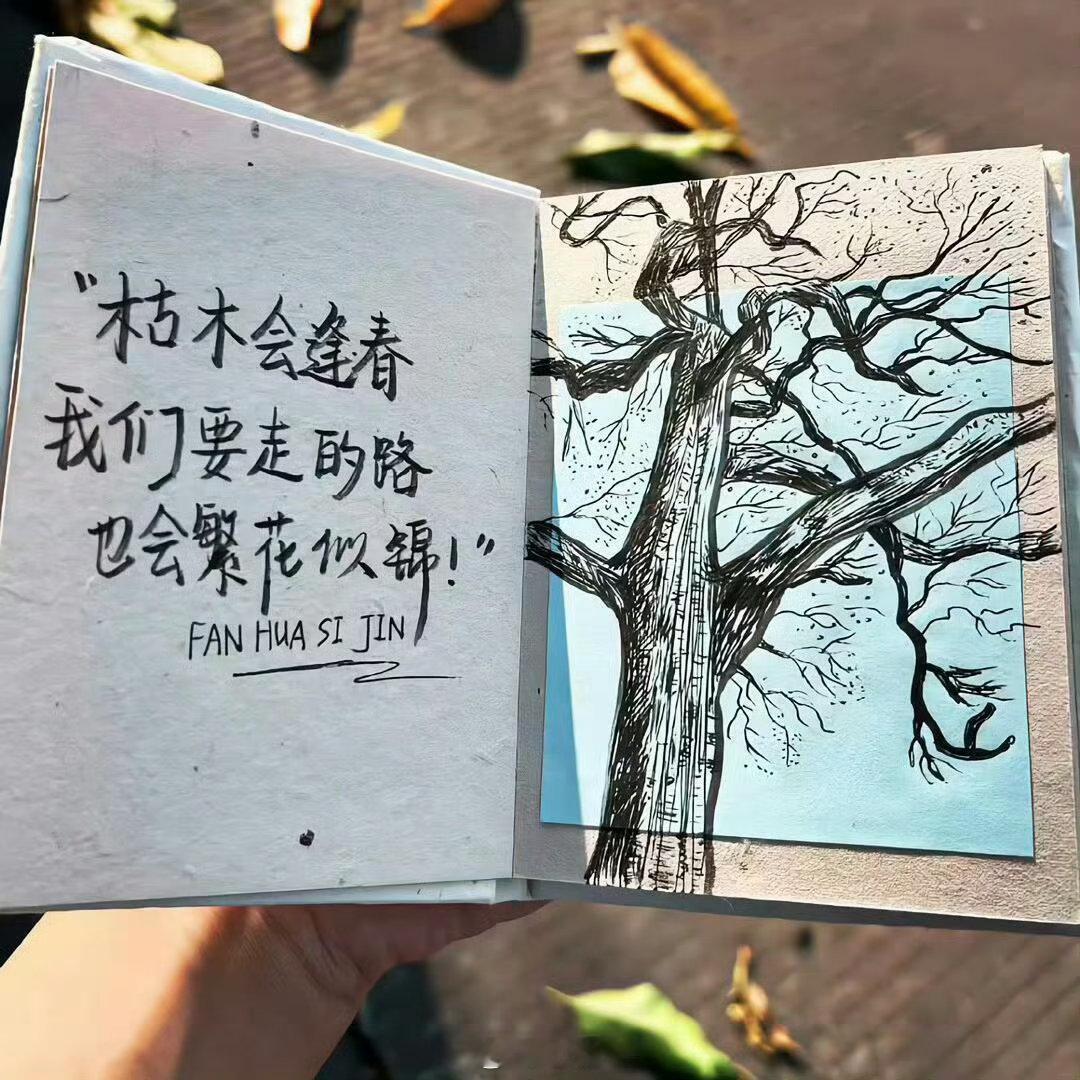 "枯木会逢春
我们要走的路
也会繁花似锦！"
FAN HUA SI JIN